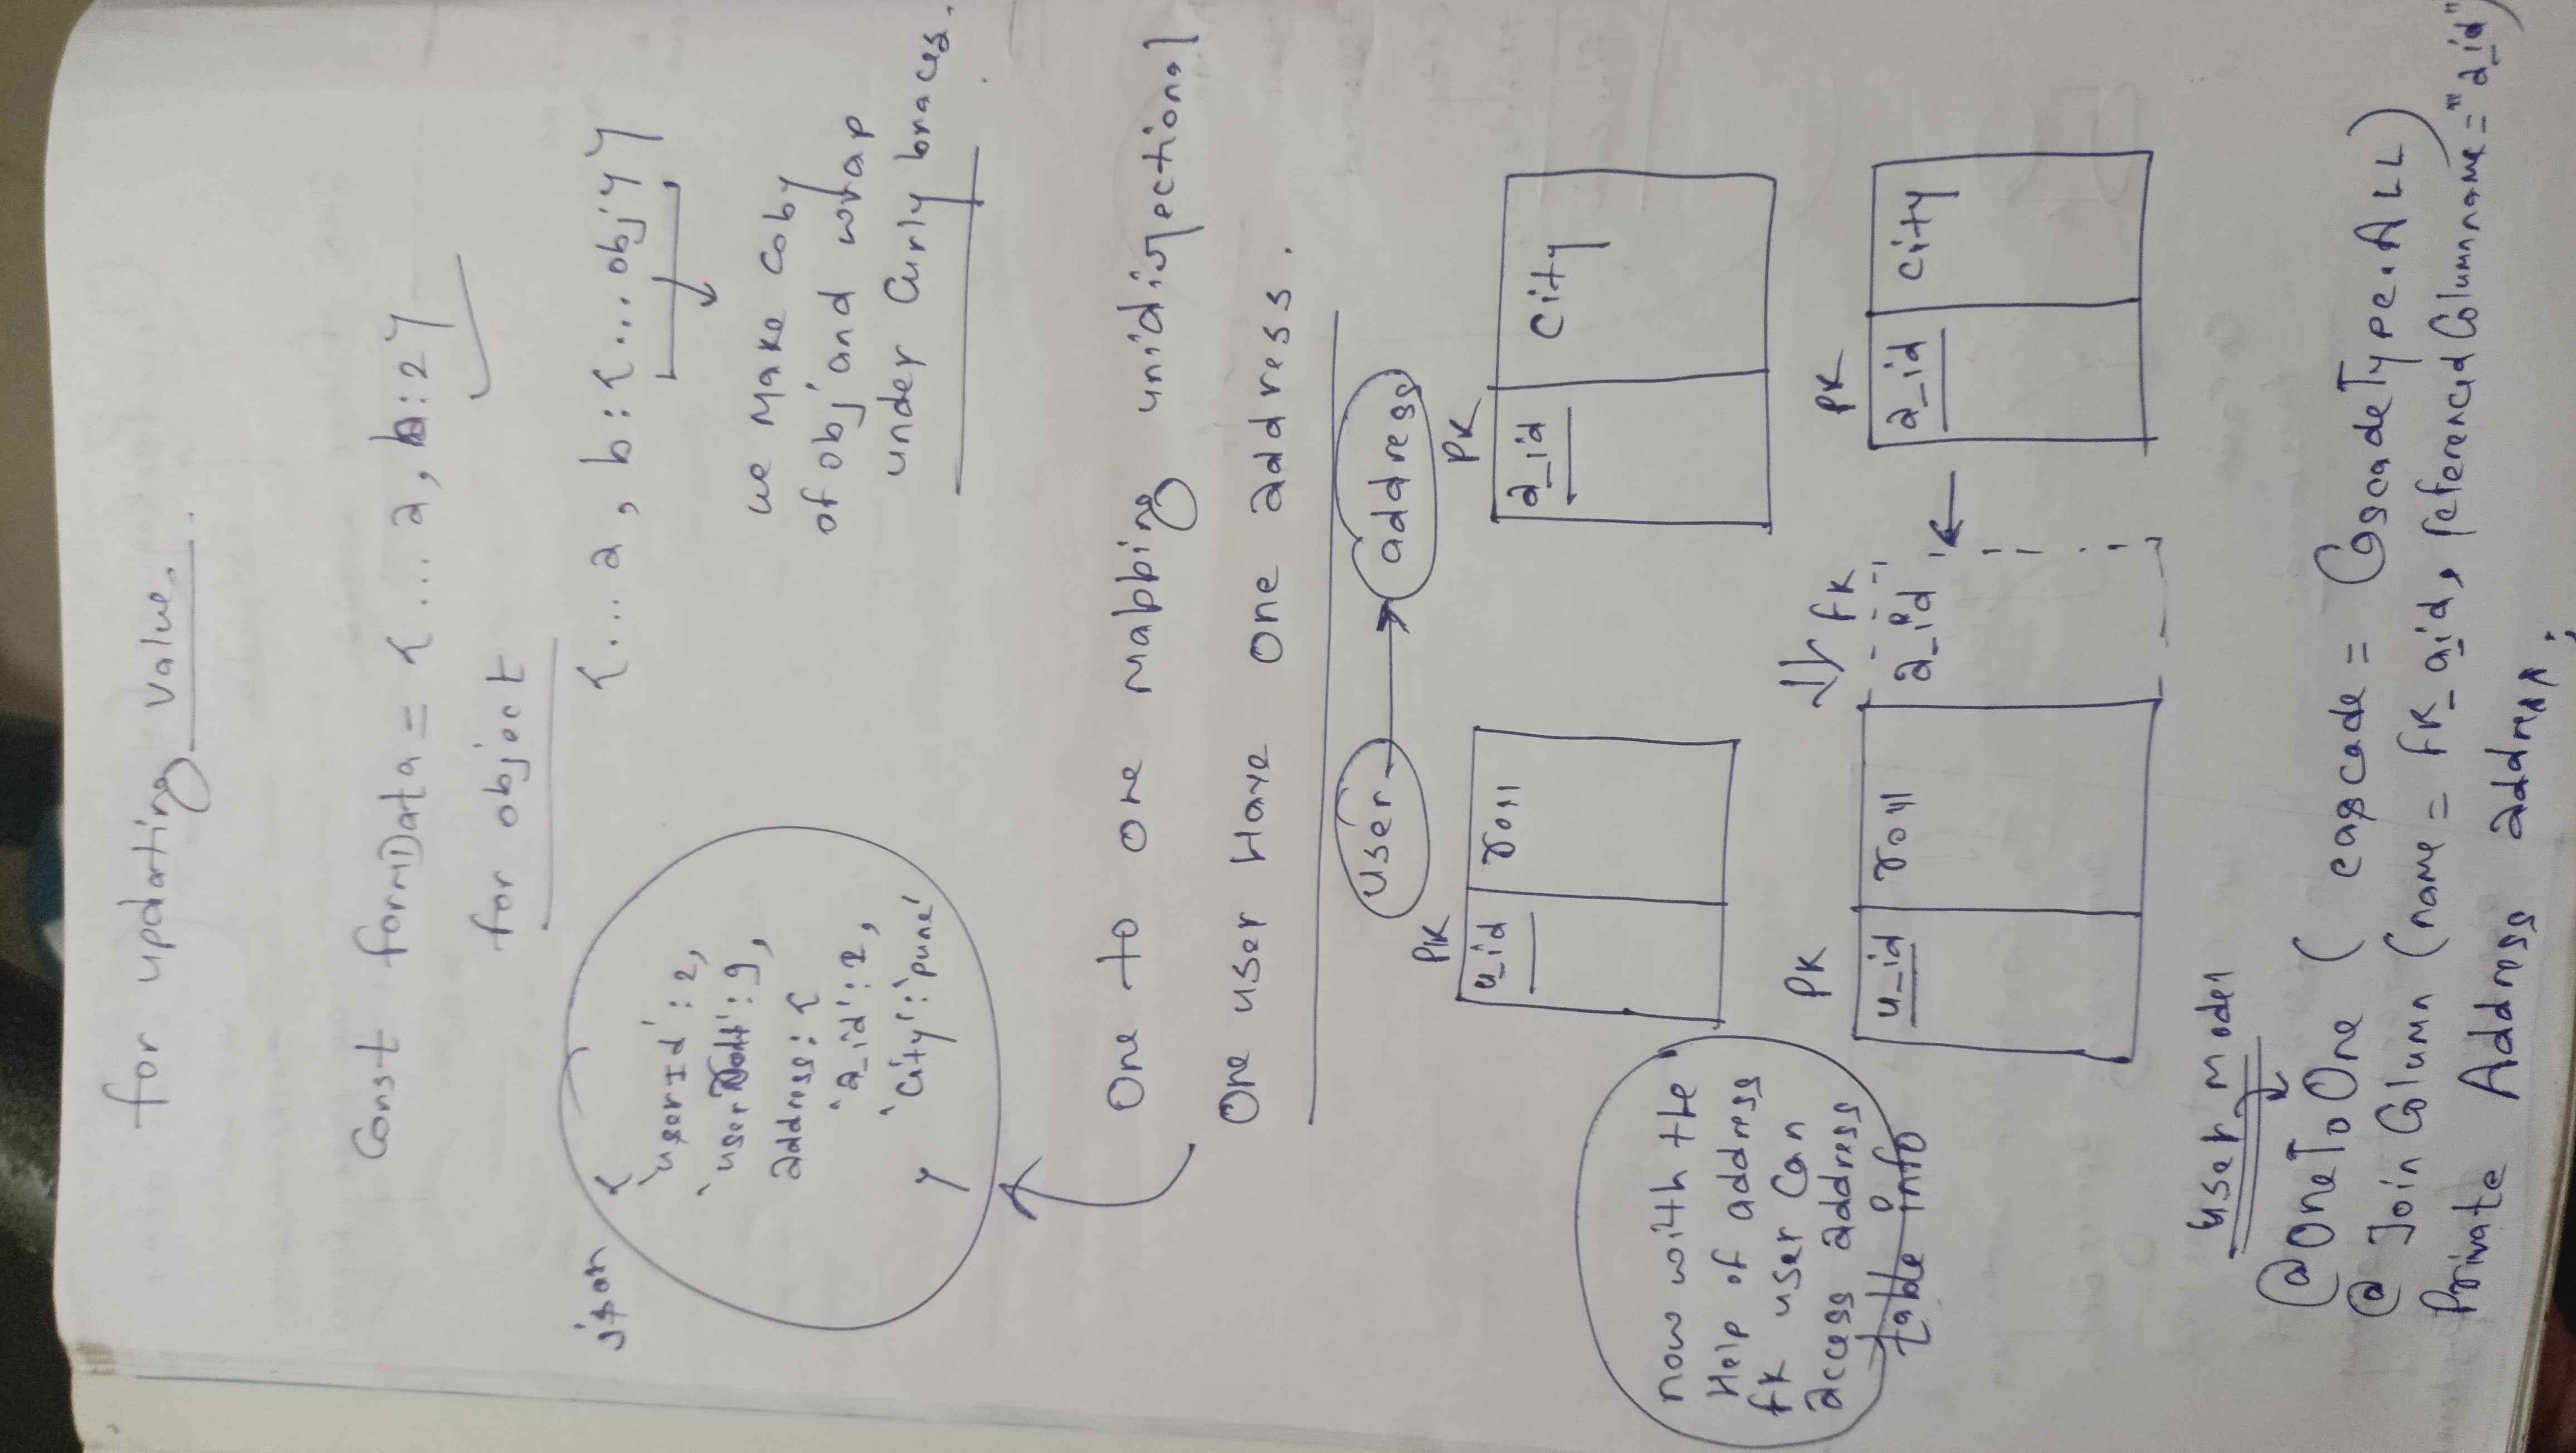 for updating value.
Const formData = {... a, b:2}
for object
json
{
'userId' : 2,
'userRoll' : 9,
address: {
'a_id' : 2,
'city' : 'pune'
}
{... a, b: {... obj}}
we make coby
of obj and wrap
under Curly braces.
One to one mabbing unidirectional
One user Have one address.
user
address
PK
u_id roll
PK
a_id City
now with the
Help of address
fk user Can
access address
table info
PK
u_id roll
fk
a_id
PK
a_id city
user model
@OneToOne ( cascade = CascadeType.ALL)
@ Join Column (name = fk_aid, referenced Column name = "a_id")
Private Address address;